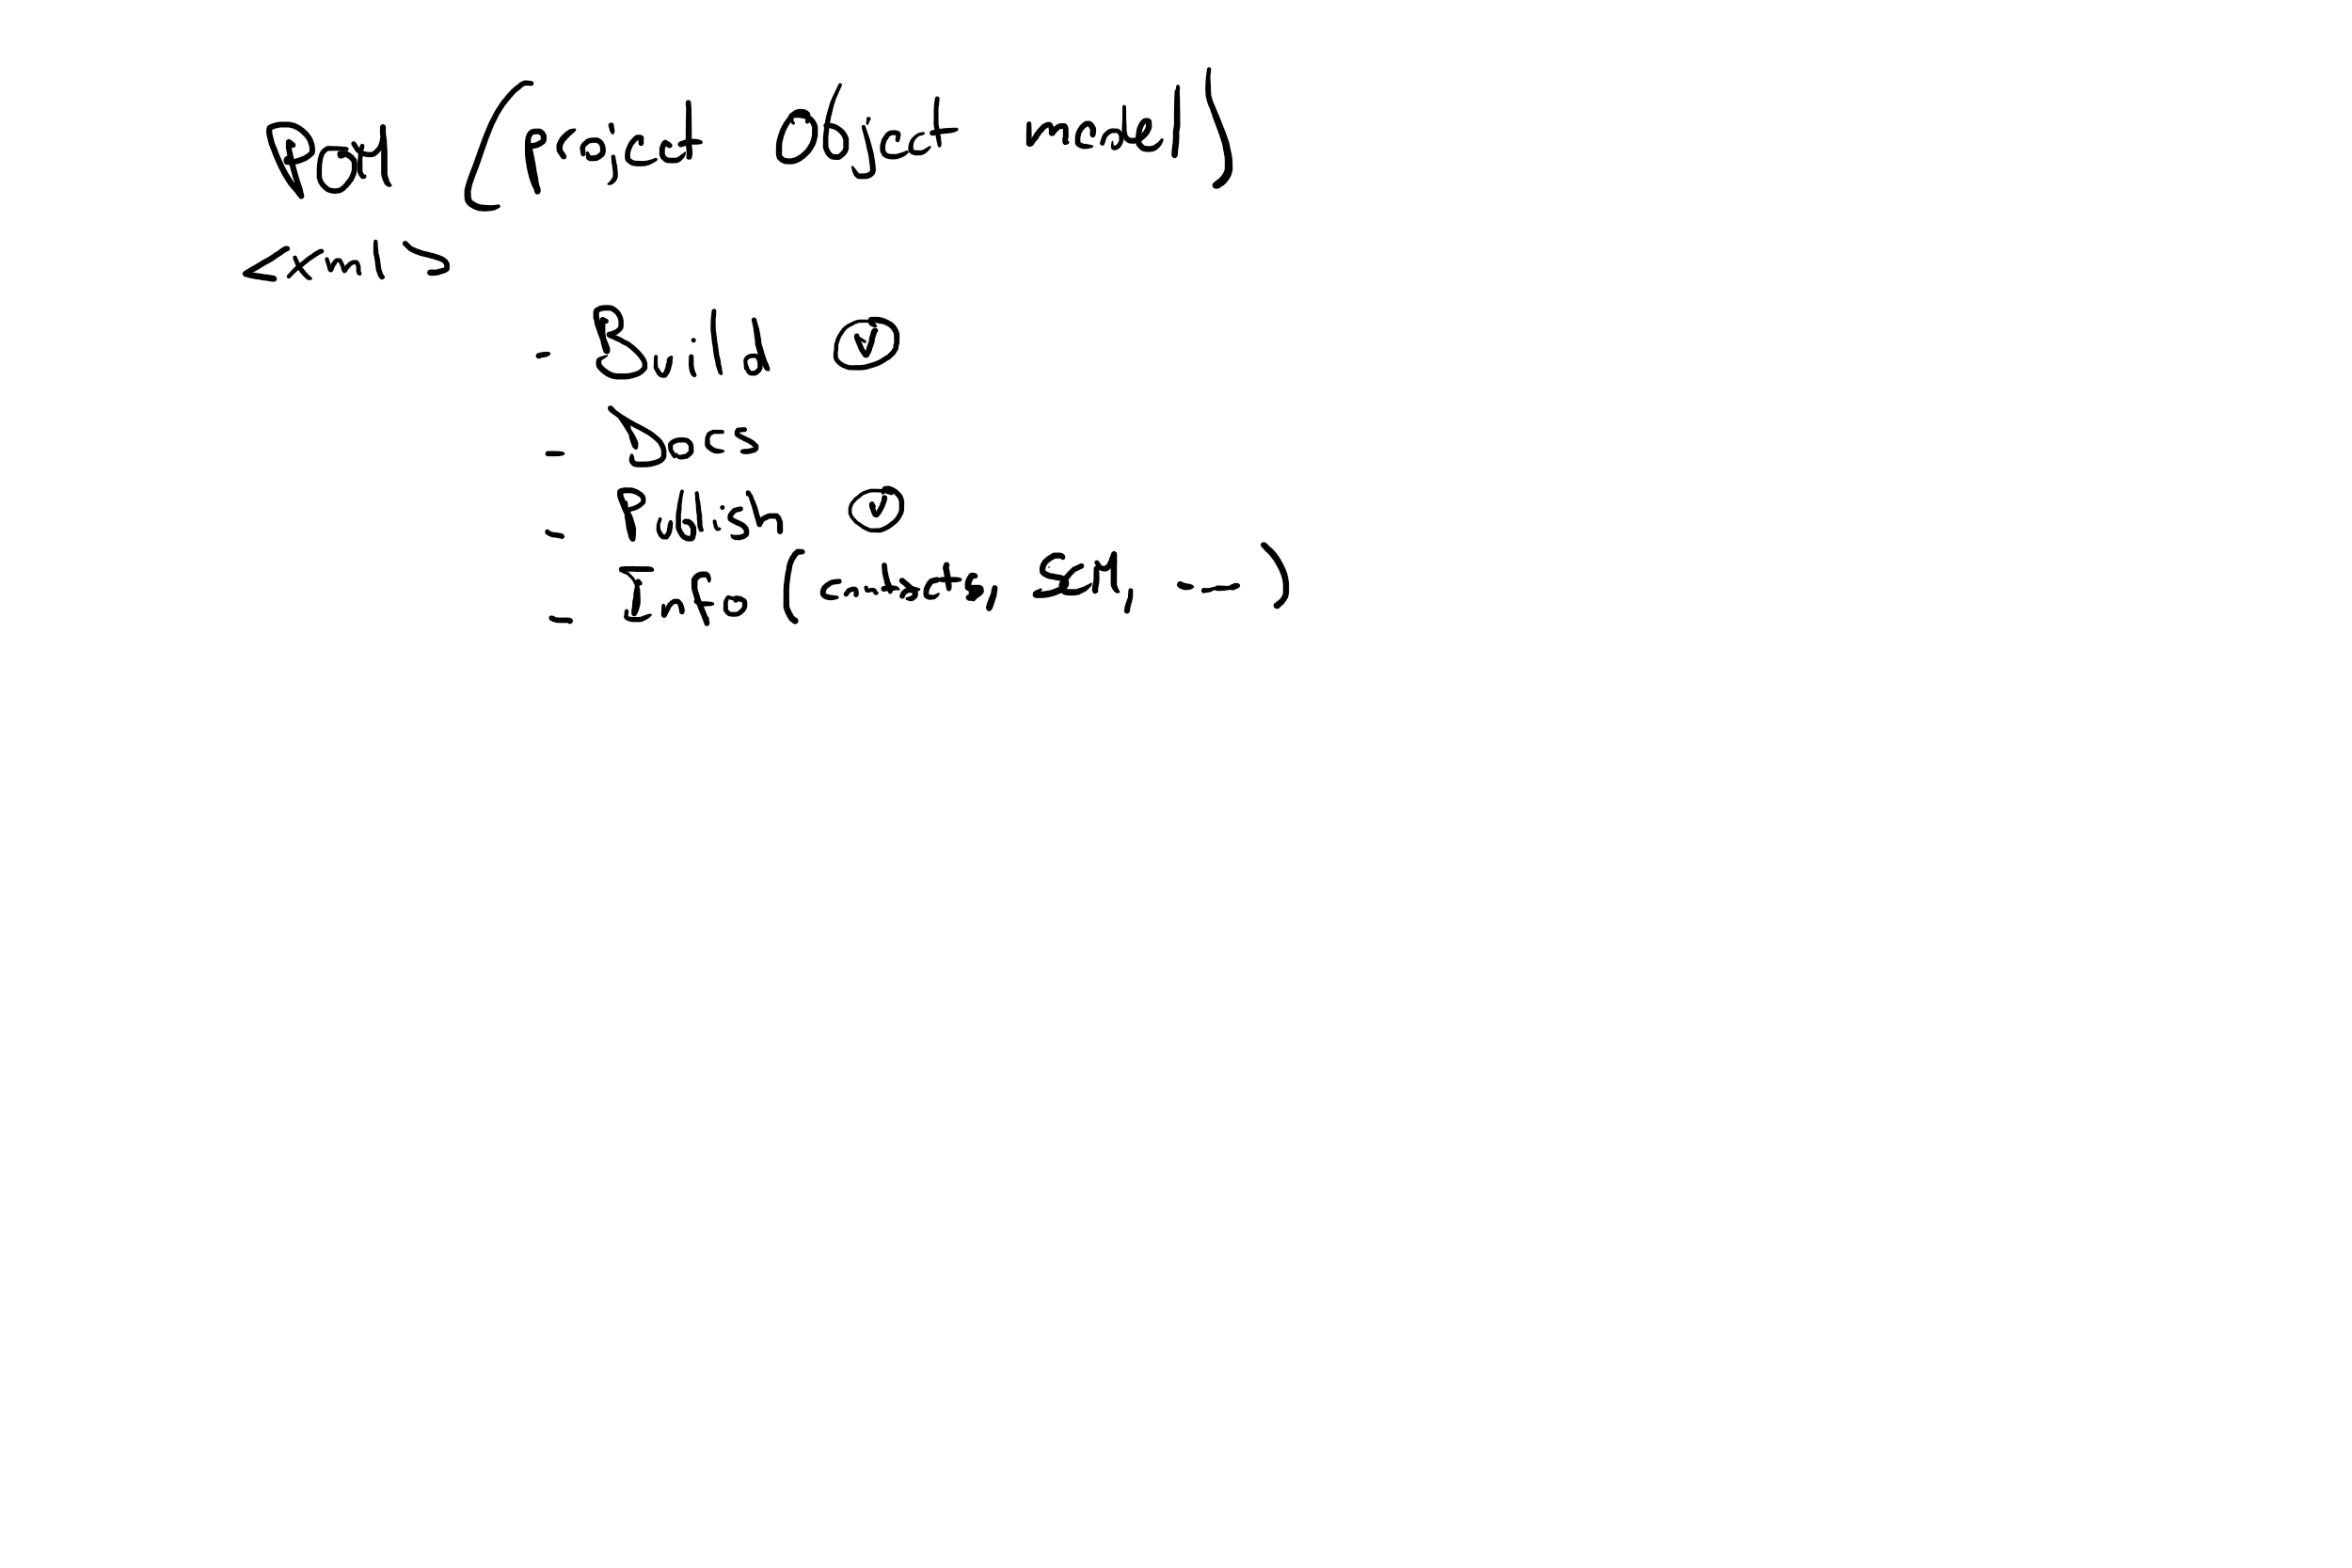 POM (project Object model)
<xml>
- Build ⓥ
- Docs
- Publish ⓥ
- Info (contacts, SCM, --)